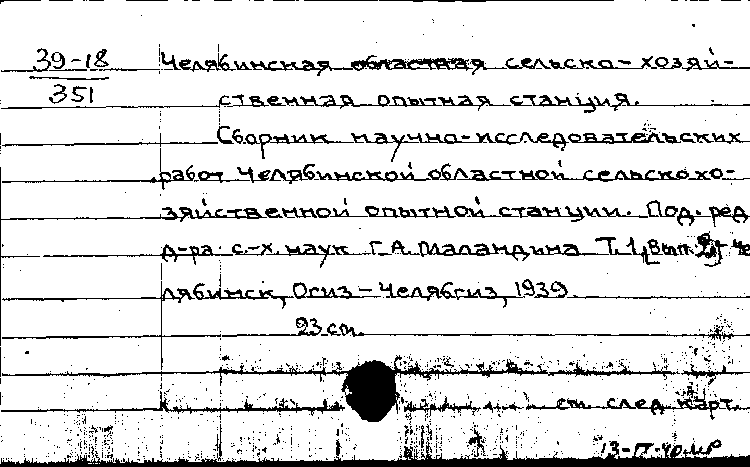 39-18
351
Челябинская областная сельско-хозяй-
ственная опытная станция.
Сборник научно-исследовательских
работ Челябинской областной сельскохо-
зяйственной опытной станции. Под. ред
д-ра с.-х. наук Г.А. Маландина Т. 1, [Вып. 2] Че
лябинск, Огиз-Челябгиз, 1939.
23 cm.
см. след карт.